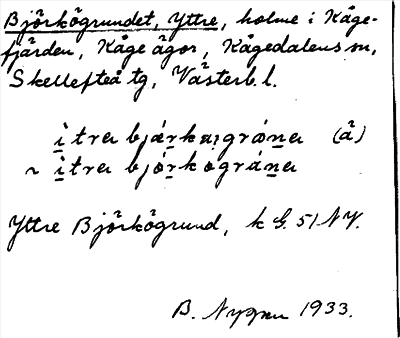 Björkögrundet, Yttre, holme i Kåge-
fjärden, Kåge ägor, Kågedalens sn,
Skellefteå tg, Västerb. l.
ìtrer bjǿrkøgrøner (å)
~ ìtrer bjørkögráner
Yttre Björkögrund, k G. 51 NY.
B. Nygren 1933.